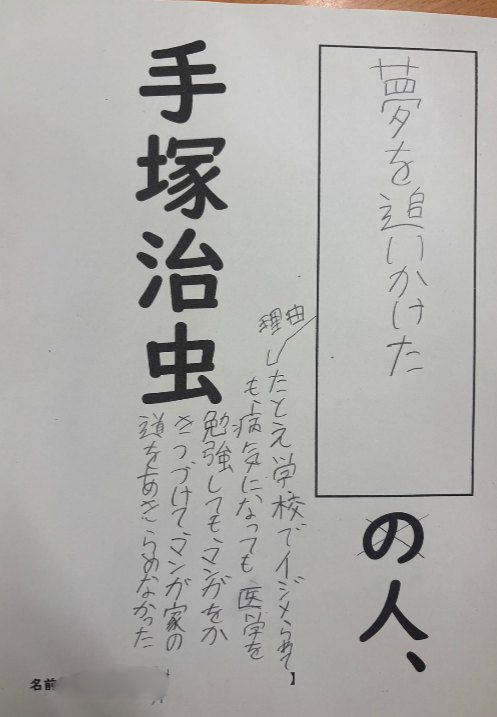 夢を追いかけた
の人、
手塚治虫
理由
たとえ学校でイジメられて
も、病気になっても医学を
勉強してもマンガをか
きつづけてマンガ家の
道をあきらめなかった
名前 】